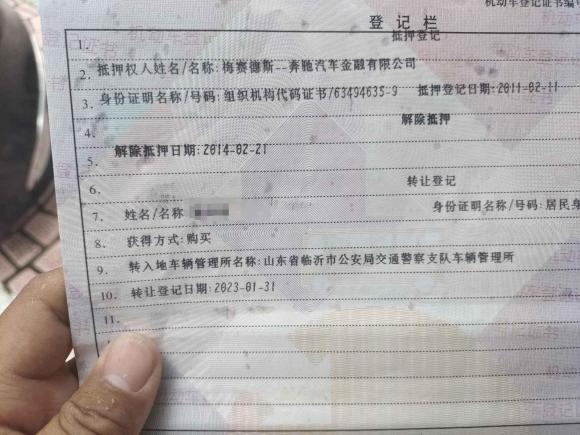 机动车登记证书编
登记栏
1. 抵押登记
2. 抵押权人姓名/名称:梅赛德斯--奔驰汽车金融有限公司
3. 身份证明名称/号码:组织机构代码证书/63494635-9 抵押登记日期:2011-02-11
4. 解除抵押
5. 解除抵押日期:2014-02-21
6. 转让登记
7. 姓名/名称 身份证明名称/号码:居民身
8. 获得方式:购买
9. 转入地车辆管理所名称:山东省临沂市公安局交通警察支队车辆管理所
10. 转让登记日期:2023-01-31
11.